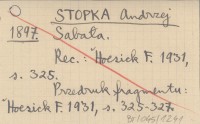 STOPKA Andrzej
1897. Sabała.
Rec.: Hoesick F. 1931,
s. 325.
Przedruk fragmentu:
Hoesick F. 1931, s. 325-327.